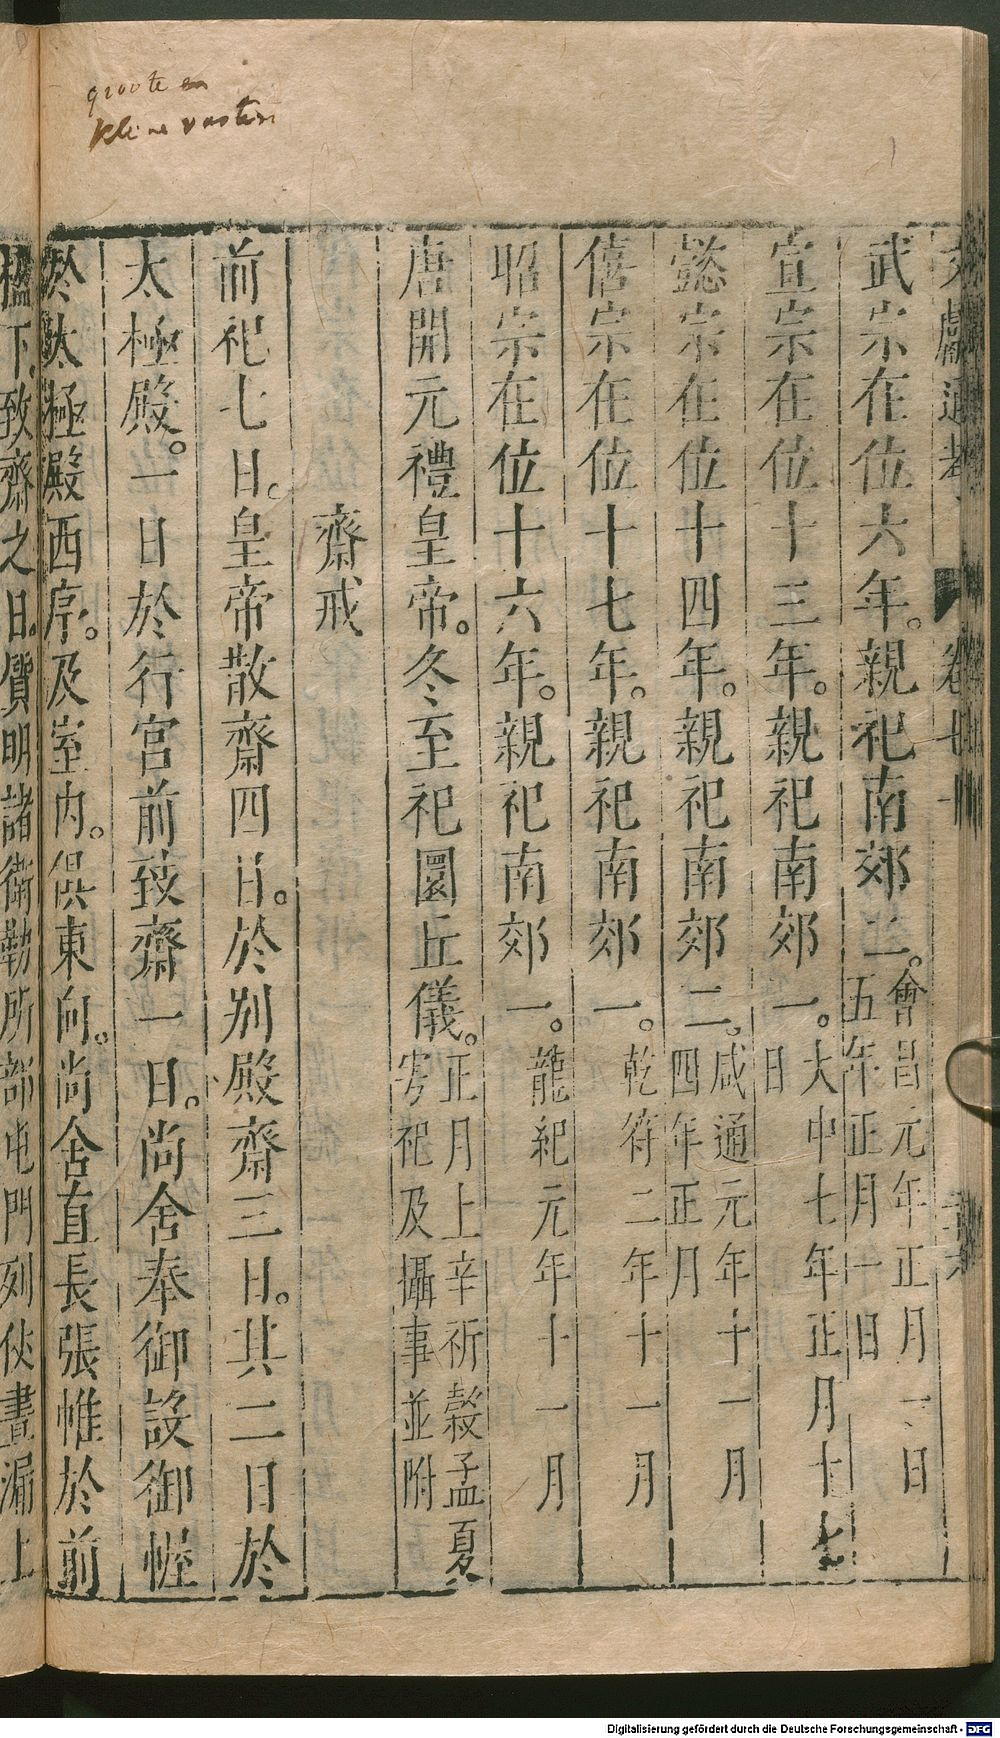 groote en
kleine vasten
文獻通考 卷七十一
武宗在位六年。親祀南郊二。會昌元年正月一日
五年正月一日
宣宗在位十三年。親祀南郊一。大中七年正月十七
日
懿宗在位十四年。親祀南郊二。咸通元年十一月
四年正月
僖宗在位十七年。親祀南郊一。乾符二年十一月
昭宗在位十六年。親祀南郊一。龍紀元年十一月
唐開元禮皇帝。冬至祀圜丘儀。正月上辛祈穀孟夏
雩祀及攝事並附
齋戒
前祀七日。皇帝散齋四日。於別殿齋三日。其二日於
太極殿。一日於行宮前致齋一日。尚舍奉御設御幄
於太極殿西序。及室內。俱東向。尚舍直長張帷於前
楹下。致齋之日。質明諸衛勒所部屯門列仗晝漏上
Digitalisierung gefördert durch die Deutsche Forschungsgemeinschaft - DFG